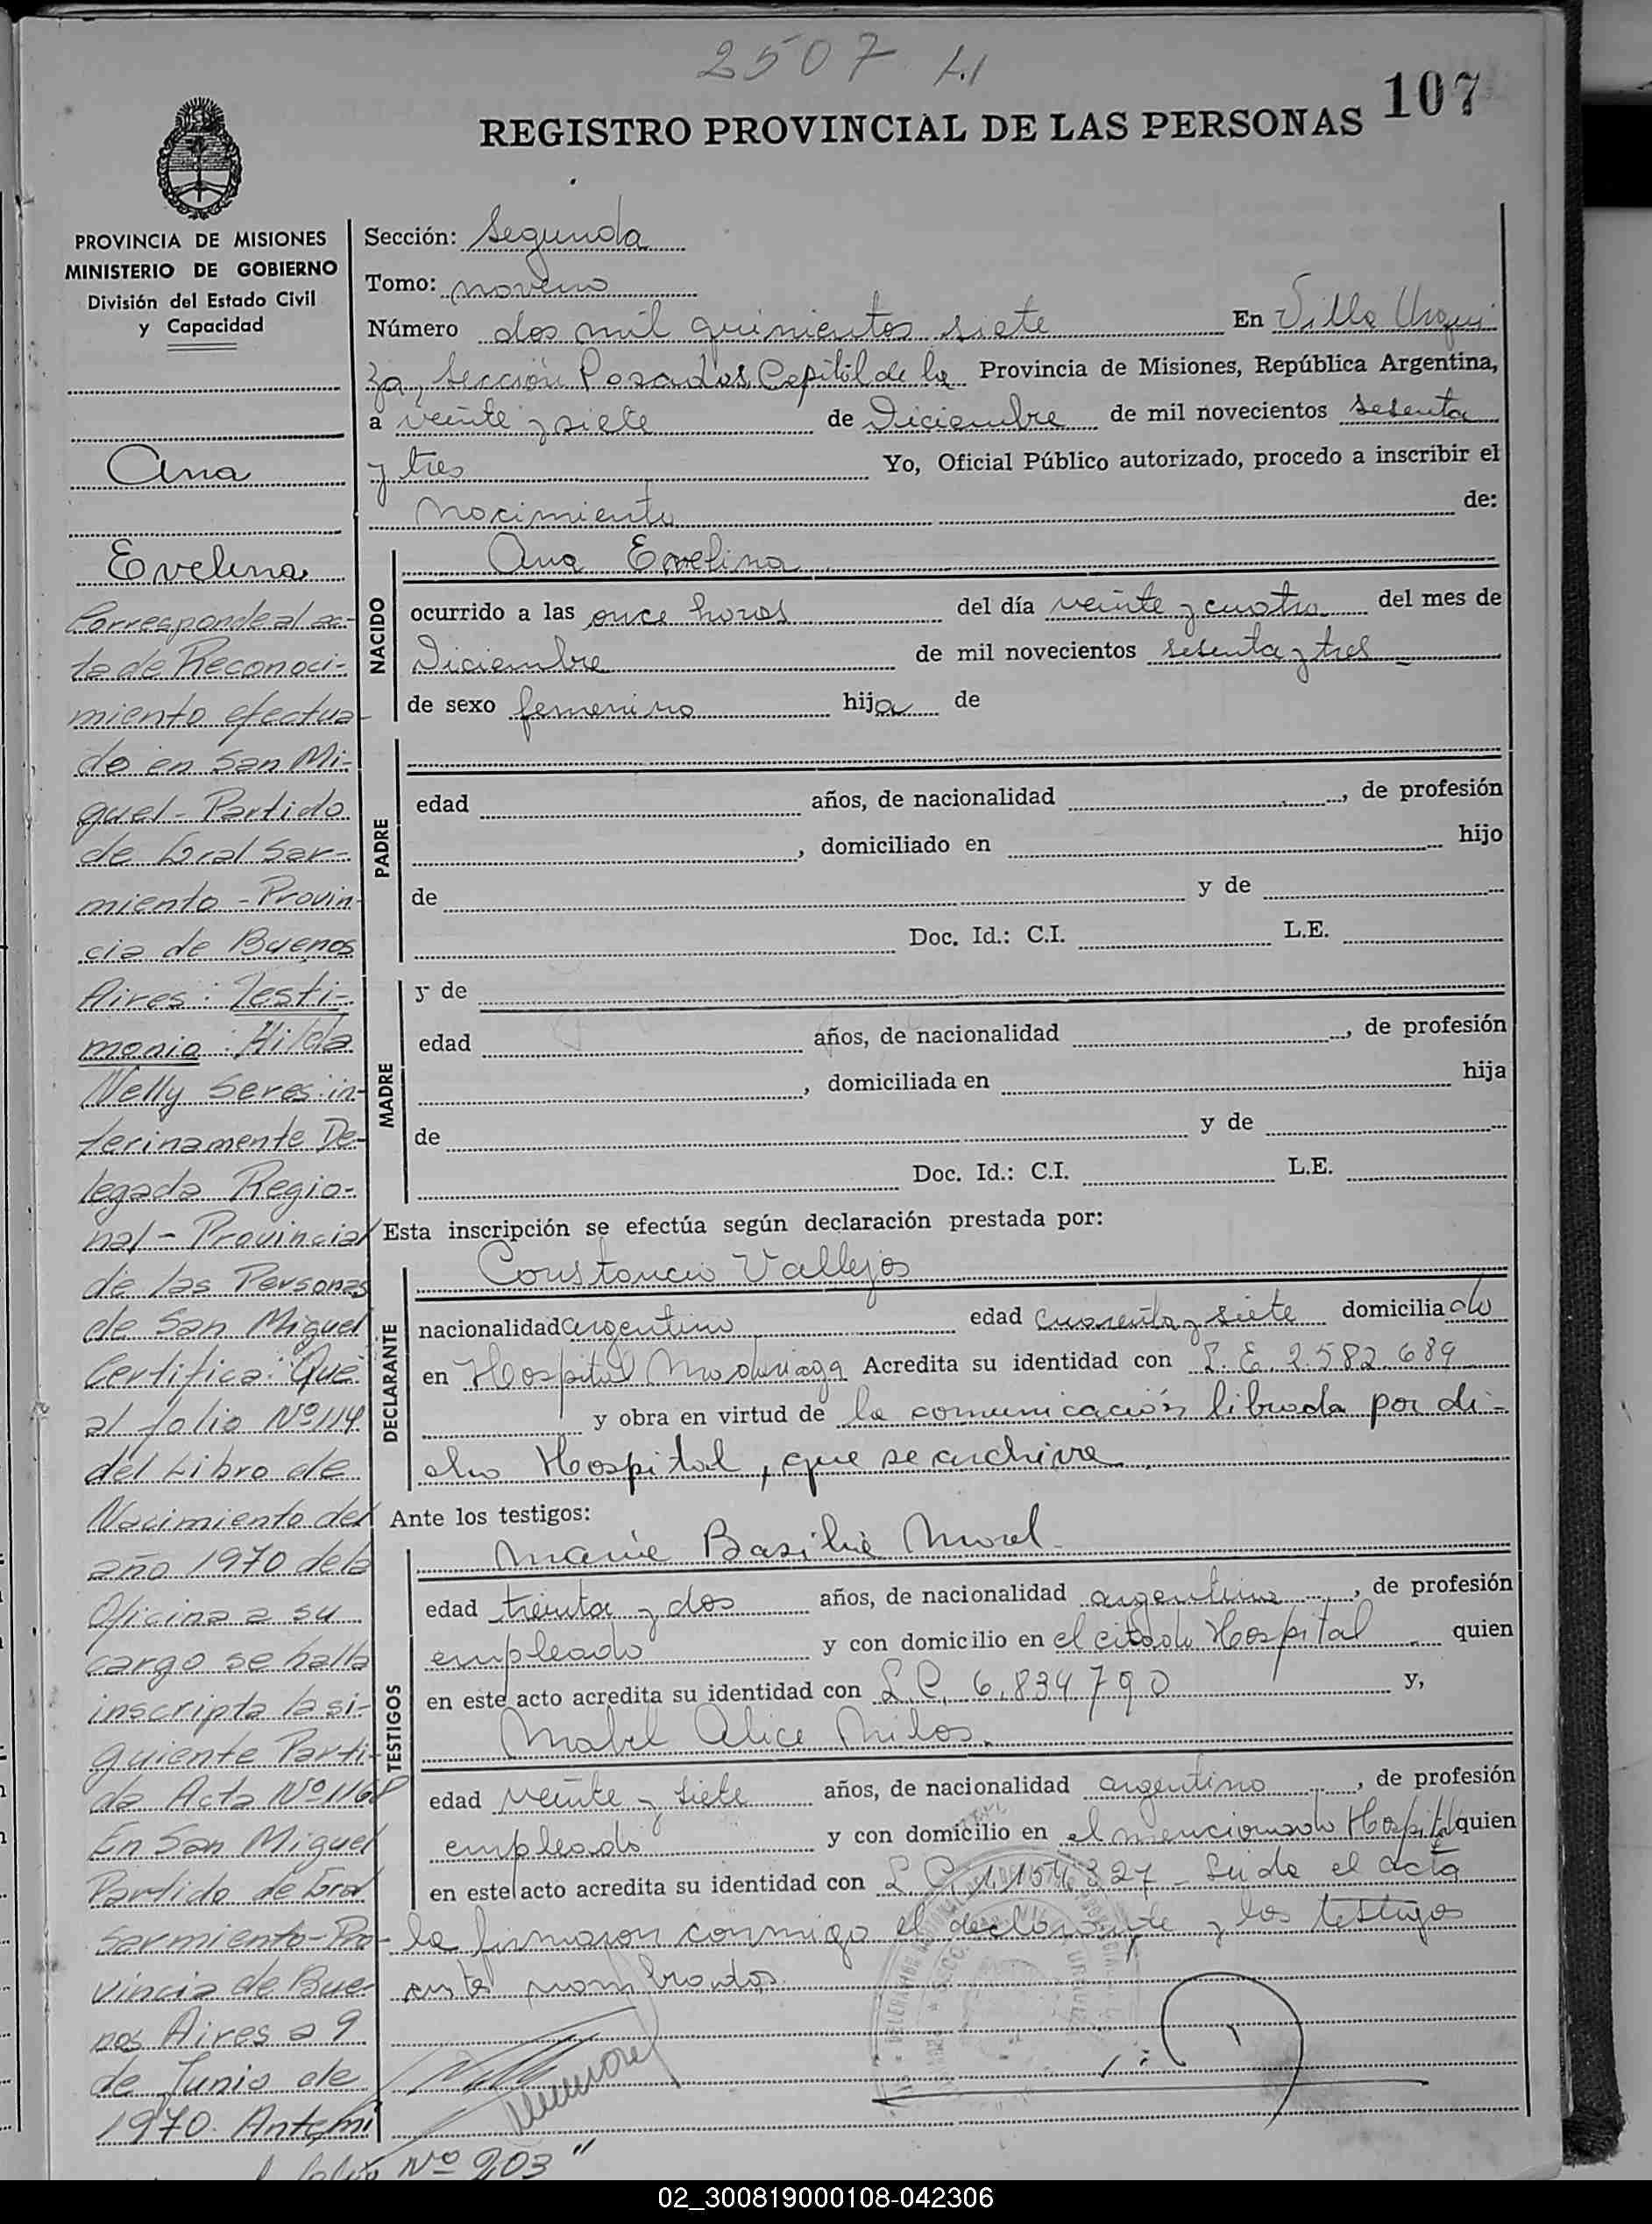 2507 L1
107
REGISTRO PROVINCIAL DE LAS PERSONAS
PROVINCIA DE MISIONES
MINISTERIO DE GOBIERNO
División del Estado Civil
y Capacidad
Ana
Evelina
Corresponde al ac-
ta de Reconoci-
miento efectua-
do en San Mi-
guel - Partido
de Gral Sar-
miento - Provin
cia de Buenos
Aires: Testi-
monio: Hilda
Nelly Seres in-
terinamente De-
legada Regio-
nal - Provincial
de las Personas
de San Miguel
Certifica: Que
al folio Nº 114
del Libro de
Nacimiento del
año 1970 de la
Oficina a su
cargo se halla
inscripta la si-
guiente Parti-
da Acta Nº 1168
En San Miguel
Partido de Gral
Sarmiento - Pro-
vincia de Bue-
nos Aires a 9
de Junio de
1970. Ante mi
Nº 203"
Sección: Segunda
Tomo: noveno
Número dos mil quinientos siete En Villa Urqui
za, Sección Posadas, Capital de la Provincia de Misiones, República Argentina,
a veinte y siete de Diciembre de mil novecientos sesenta
y tres Yo, Oficial Público autorizado, procedo a inscribir el
nacimiento de:
NACIDO
Ana Evelina
ocurrido a las once horas del día veinte y cuatro del mes de
Diciembre de mil novecientos sesenta y tres
de sexo femenino hija de
PADRE
edad años, de nacionalidad , de profesión
, domiciliado en hijo
de y de
Doc. Id.: C.I. L.E.
MADRE
y de
edad años, de nacionalidad , de profesión
, domiciliada en hija
de y de
Doc. Id.: C.I. L.E.
Esta inscripción se efectúa según declaración prestada por:
DECLARANTE
Constancio Vallejos
nacionalidad argentino edad cuarenta y siete domiciliado
en Hospital Madariaga Acredita su identidad con L.E. 2.582.689
y obra en virtud de la comunicación librada por di-
cho Hospital, que se archiva.
Ante los testigos:
TESTIGOS
María Basilia Morel
edad treinta y dos años, de nacionalidad argentina , de profesión
empleada y con domicilio en el citado Hospital quien
en este acto acredita su identidad con L.C. 6.834.790 y,
Mabel Alice Milos.
edad veinte y siete años, de nacionalidad argentina , de profesión
empleada y con domicilio en el mencionado Hospital quien
en este acto acredita su identidad con L.C. 1.154.327 - Leida el acta
la firmaron conmigo el declarante y los testigos
antes nombrados.
02_300819000108-042306